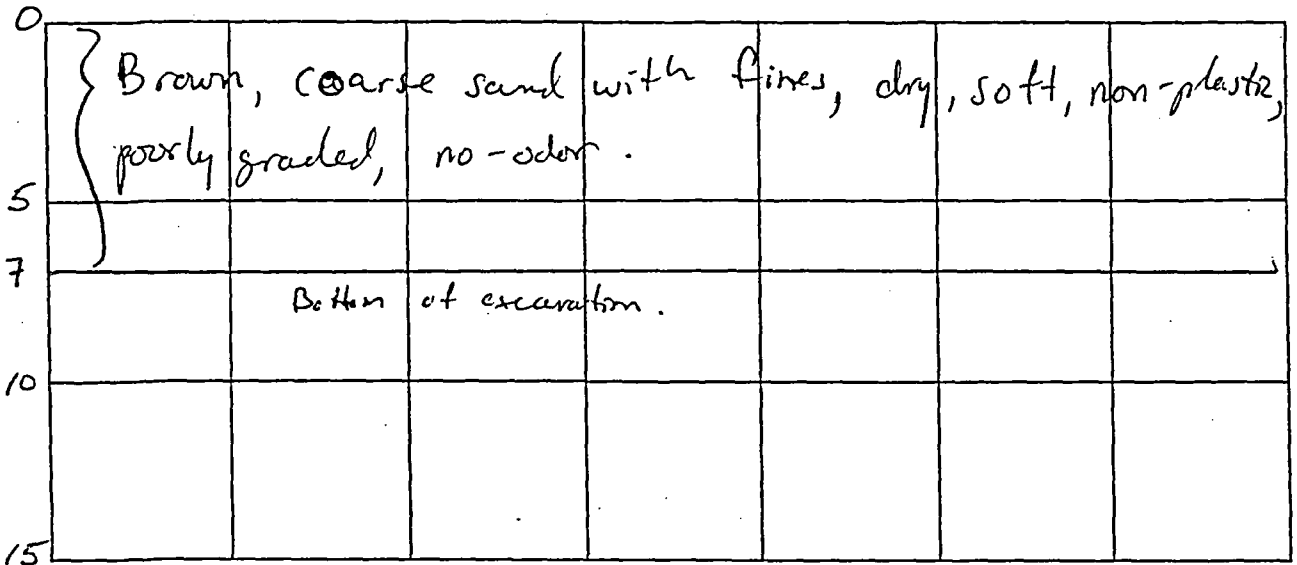 0
Brown, coarse sand with fines, dry, soft, non-plastic,
poorly graded, no-odor.
5
7
Bottom of excavation.
10
15